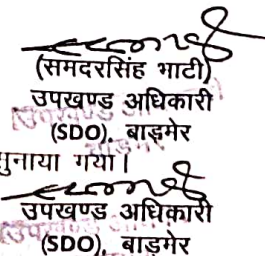 (समदरसिंह भाटी)
उपखण्ड अधिकारी
(SDO), बाड़मेर
सुनाया गया।
उपखण्ड अधिकारी
(SDO), बाड़मेर